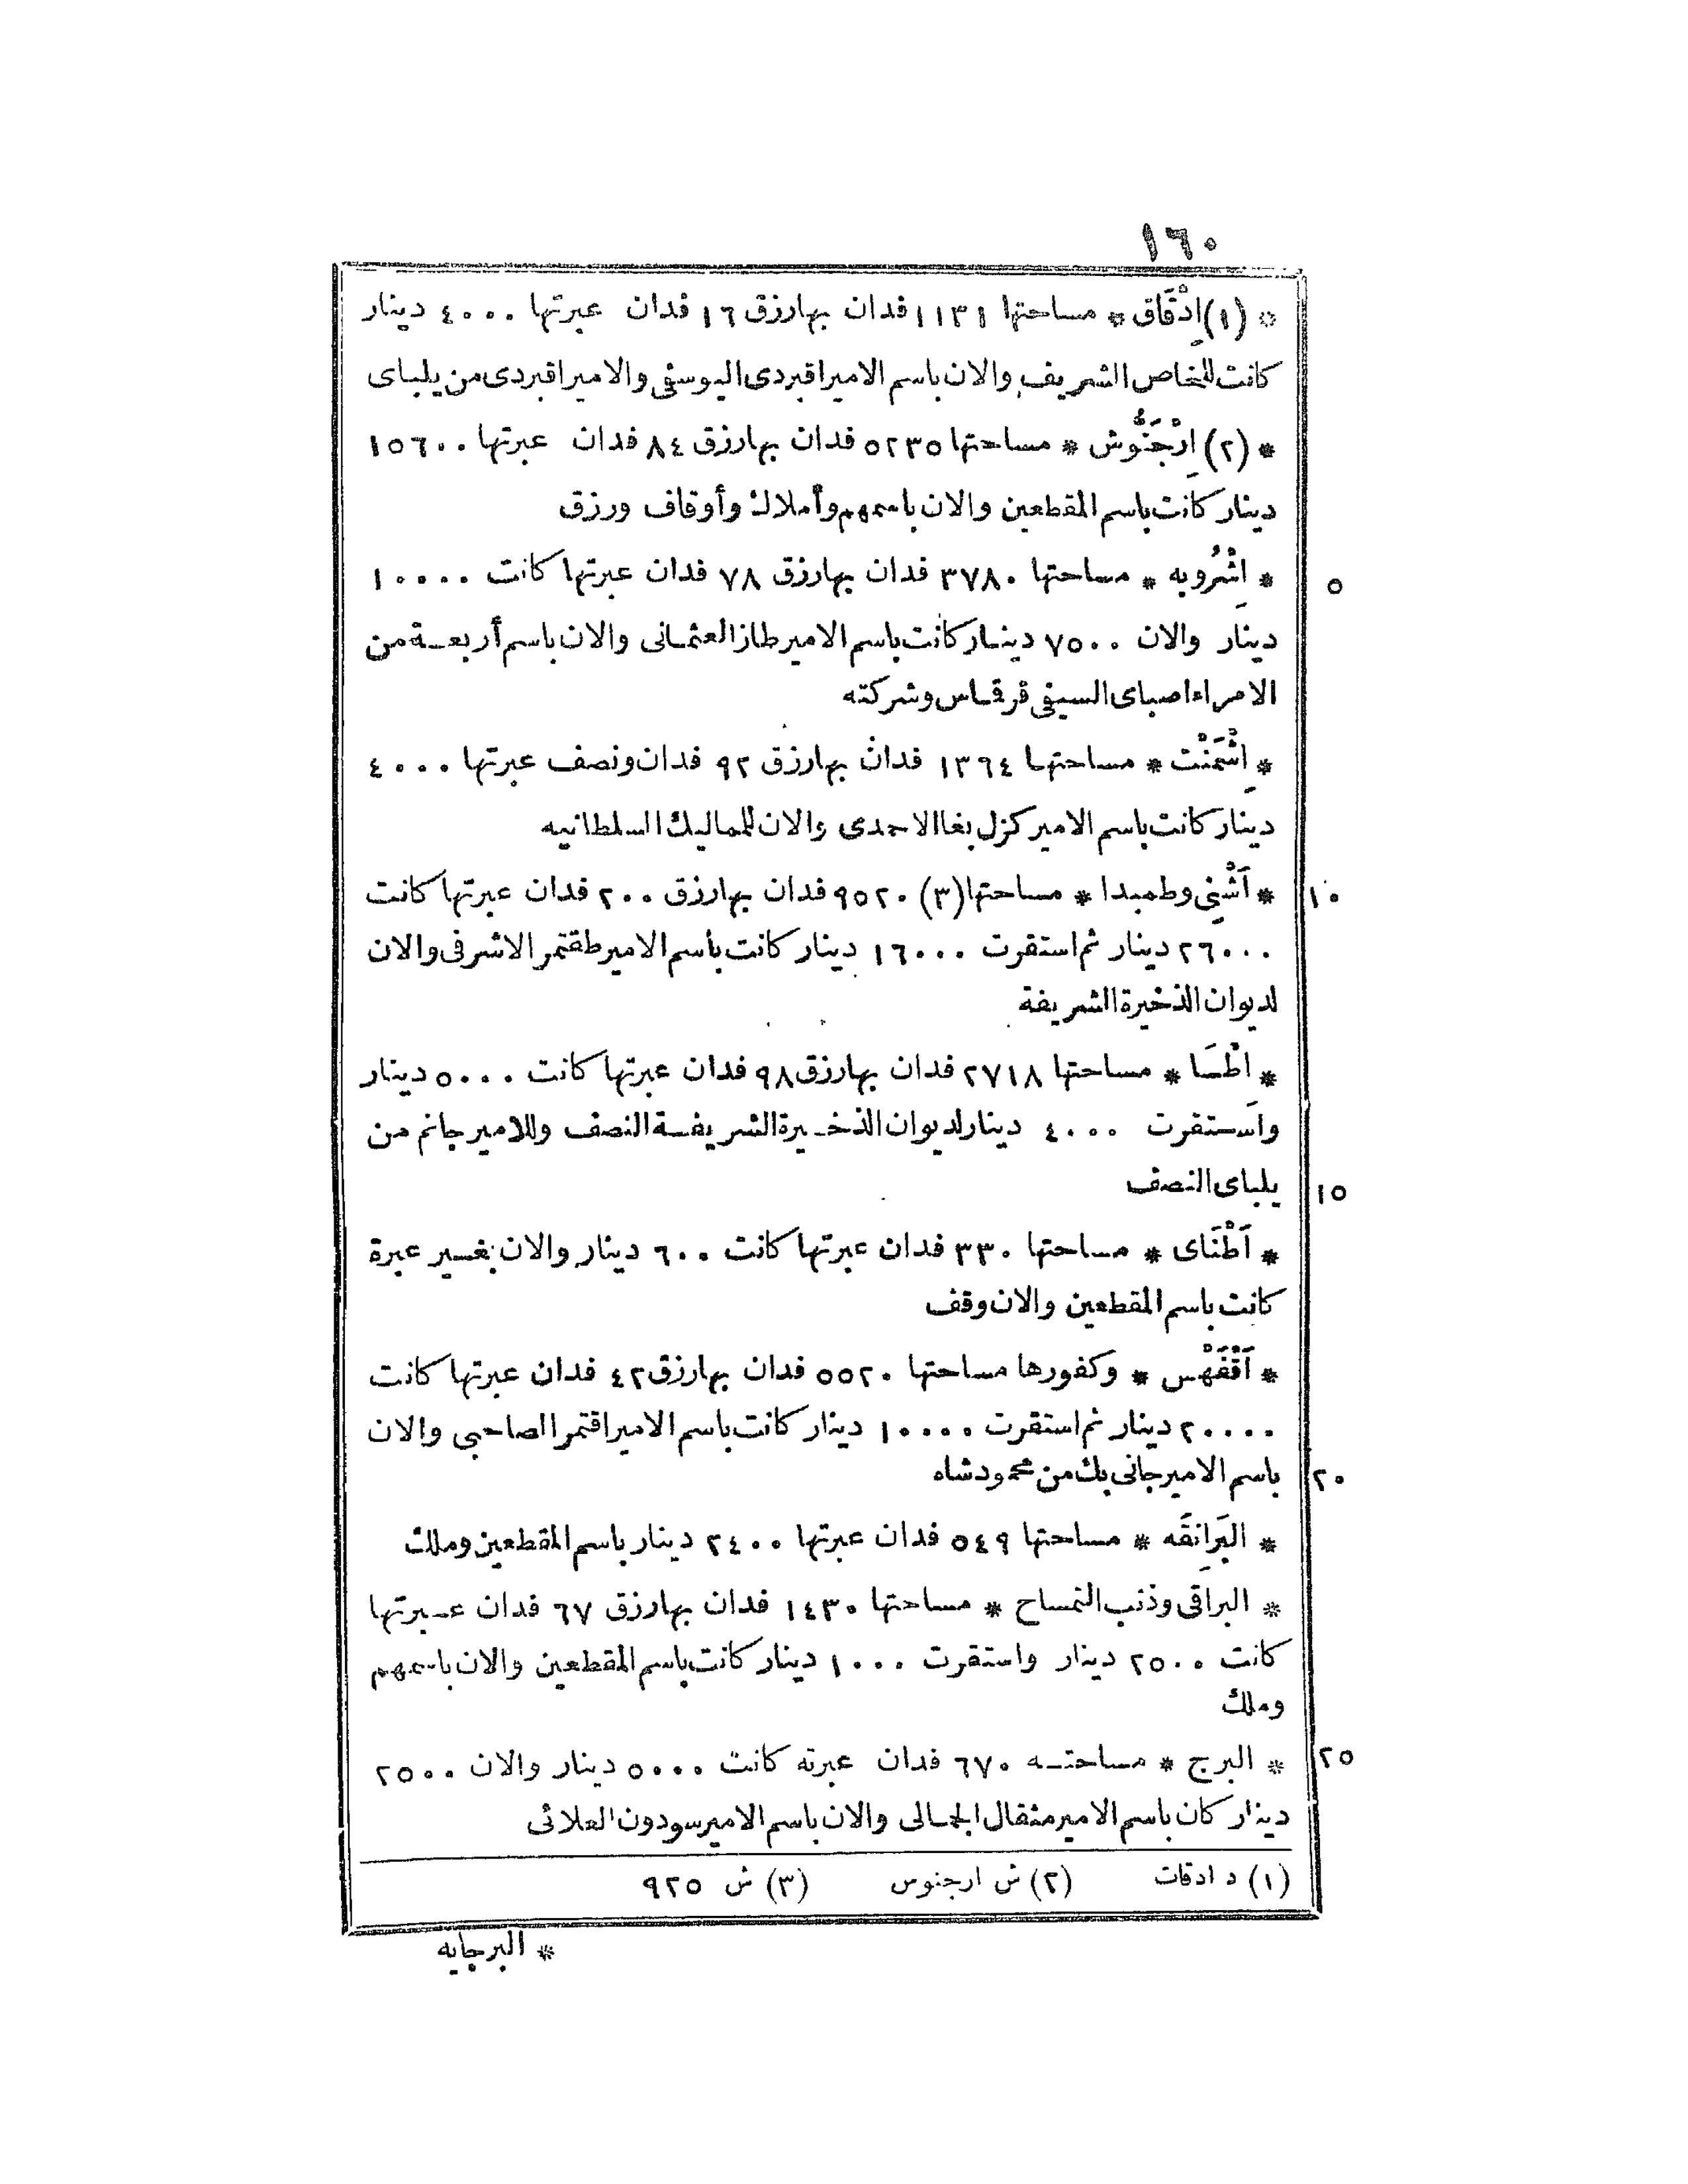 ١٦٠
* (١) اِدْقَاق * مساحتها ١١٣١ فدان بها رزق ١٦ فدان عبرتها ٤٠٠٠ دينار
كانت للخاص الشريف والان باسم الامير اقبردى اليوسفى والامير اقبردى من يلباى
* (٢) اِرْجَنُّوش * مساحتها ٥٢٣٥ فدان بها رزق ٨٤ فدان عبرتها ١٥٦٠٠
دينار كانت باسم المقطعين والان باسمهم وأملاك وأوقاف ورزق
* اِشْرُوبه * مساحتها ٣٧٨٠ فدان بها رزق ٧٨ فدان عبرتها كانت ١٠٠٠٠
٥
دينار والان ٧٥٠٠ دينار كانت باسم الامير طاز العثمانى والان باسم أربعة من
الامراء اصباى السيفى قرقاس وشركته
* اِشْمَنْت * مساحتها ١٣٦٤ فدان بها رزق ٩٢ فدان ونصف عبرتها ٤٠٠٠
دينار كانت باسم الامير كزل بغا الاحمدى والان للمماليك السلطانيه
* اَشْنِى وطمبدا * مساحتها (٣) ٩٥٢٠ فدان بها رزق ٢٠٠ فدان عبرتها كانت
١٠
٢٦٠٠٠ دينار ثم استقرت ١٦٠٠٠ دينار كانت بأسم الامير طقتمر الاشرفى والان
لديوان الذخيرة الشريفة
* اطْسَا * مساحتها ٢٧١٨ فدان بها رزق ٩٨ فدان عبرتها كانت ٥٠٠٠ دينار
واستقرت ٤٠٠٠ دينار لديوان الذخيرة الشريفة النصف وللامير جانم من
يلباى النصف
١٥
* اَطْنَاى * مساحتها ٣٣٠ فدان عبرتها كانت ٦٠٠ دينار والان بغير عبرة
كانت باسم المقطعين والان وقف
* اَقْفَهْس * وكفورها مساحتها ٥٥٢٠ فدان بها رزق ٤٢ فدان عبرتها كانت
٢٠٠٠٠ دينار ثم استقرت ١٠٠٠٠ دينار كانت باسم الامير اقتمر الصاحبى والان
باسم الامير جانى بك من محمود شاه
٢٠
* البَرانِقَه * مساحتها ٥٤٩ فدان عبرتها ٢٤٠٠ دينار باسم المقطعين وملك
* البراقى وذنب التمساح * مساحتها ١٤٣٠ فدان بها رزق ٦٧ فدان عبرتها
كانت ٢٥٠٠ دينار واستقرت ١٠٠٠ دينار كانت باسم المقطعين والان باسمهم
وملك
* البرج * مساحته ٦٧٠ فدان عبرته كانت ٥٠٠٠ دينار والان ٢٥٠٠
٢٥
دينار كان باسم الامير مثقال الجمالى والان باسم الامير سودون العلائى
(١) د ادقات (٢) ش ارجنوس (٣) ش ٩٢٥
* البرجايه